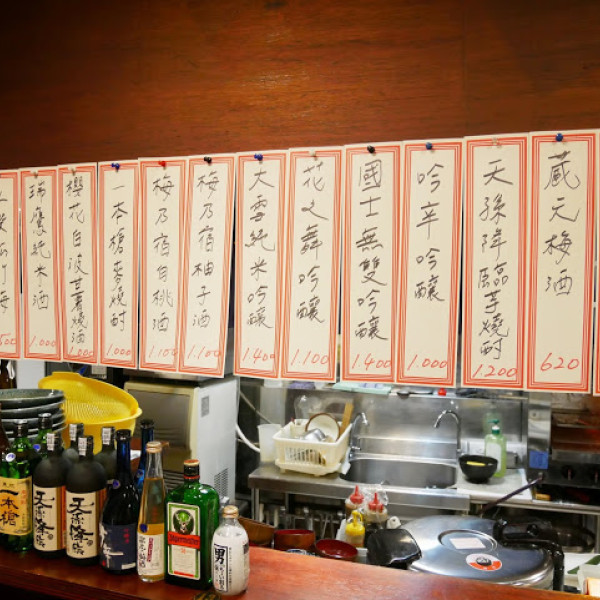 蔵元梅酒
620
天孫降臨芋燒酎
1.200
吟辛吟釀
1.000
國士無雙吟釀
1.400
花之舞吟釀
1.100
大雪純米吟釀
1.400
梅乃宿柚子酒
1.100
梅乃宿白桃酒
1.100
一本槍麥燒酎
1.000
櫻花白波芋薯燒酒
1.000
瑞鷹純米酒
1.000
本槍
天孫降臨
天孫降臨
Jägermeister
男